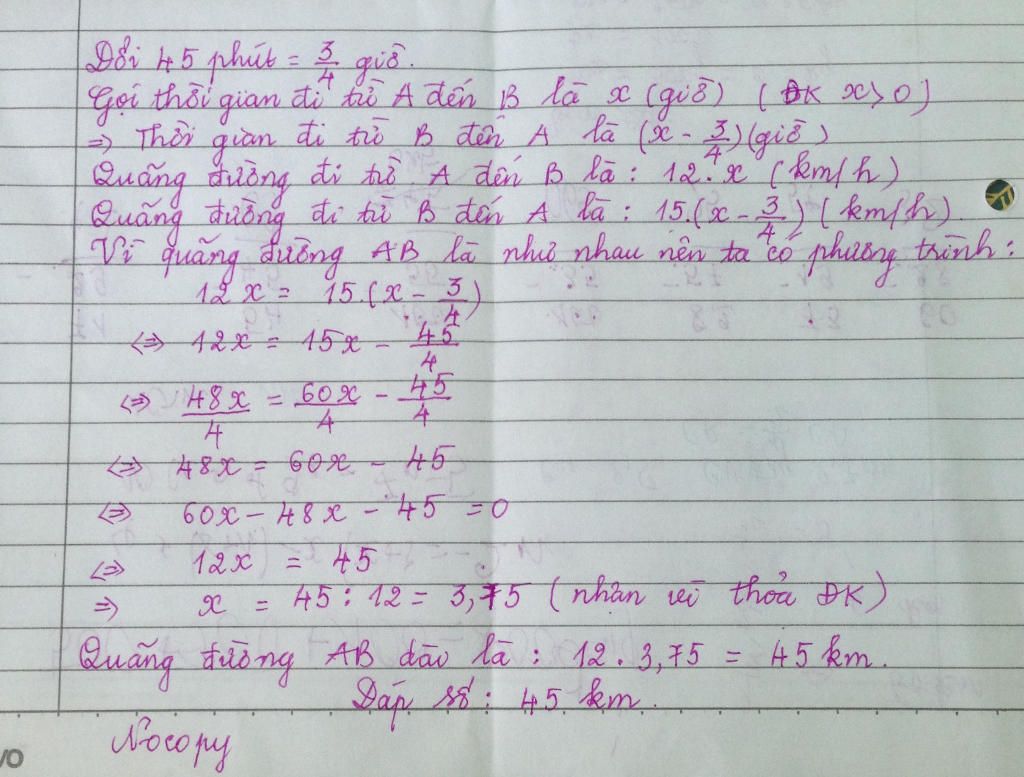 Đổi 45 phút = 3/4 giờ.
Gọi thời gian đi từ A đến B là x (giờ) (ĐK x>0)
=> Thời gian đi từ B đến A là (x - 3/4)(giờ)
Quãng đường đi từ A đến B là: 12.x (km/h)
Quãng đường đi từ B đến A là: 15.(x - 3/4) (km/h).
Vì quãng đường AB là như nhau nên ta có phương trình:
12x = 15.(x - 3/4)
<=> 12x = 15x - 45/4
<=> 48x/4 = 60x/4 - 45/4
<=> 48x = 60x - 45
<=> 60x - 48x - 45 = 0
<=> 12x = 45
=> x = 45 : 12 = 3,75 (nhân vì thỏa ĐK)
Quãng đường AB dào là: 12.3,75 = 45 km.
Đáp số: 45 km.
Nocopy